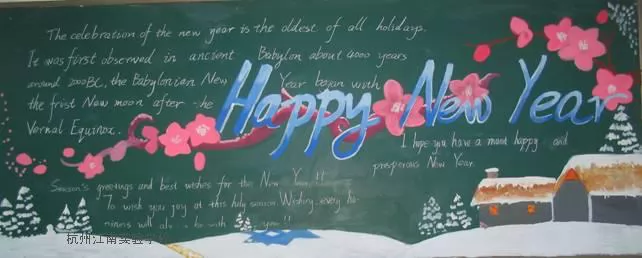 The celebration of the new year is the oldest of all holidays.
It was first observed in ancient Babylon about 4000 years
around 2000BC, the Babylonian New Year bejun with
the frist New moon after he
Vernal Equinox.
Happy New Year
I hope you have a most happy and
prosperous New Year.
Season's greetings and best wishes for the New Year!!
To wish you joy at this holy season. Wishing every
will be with you!!
杭州江南实验学